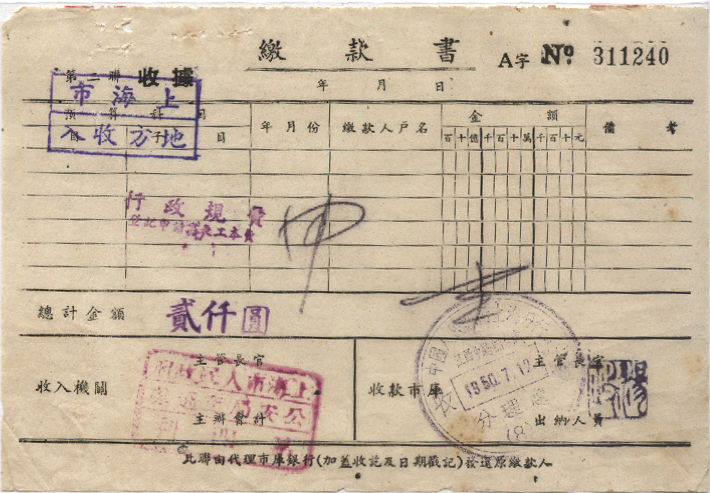 繳款書
A字 No 311240
第二聯 收據
年 月 日
上海市
地方收入
預算科目
目 子 目
年月份 繳款人戶名 金額 備考
百十億千百十萬千百十元
行政規費
登記申請書表工本費
總計金額 貳仟圓
收入機關 主管長官 收款市庫 主管長官
上海市人民政府
公安局
中國人民銀行
1950.7.12
收
分理處
主辦會計 出納人員
楊
此聯由代理市庫銀行(加蓋收訖及日期戳記)發還原繳款人